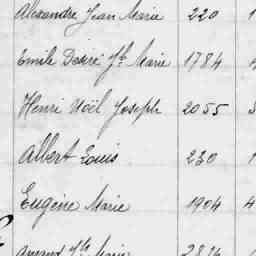 Alexandre Jean Marie 220 1
Emile Désiré Jh Marie 1784
Henri Noël Joseph 2055
Albert Louis 230 1
Eugène Marie 1904 4
Amand Jh Marie